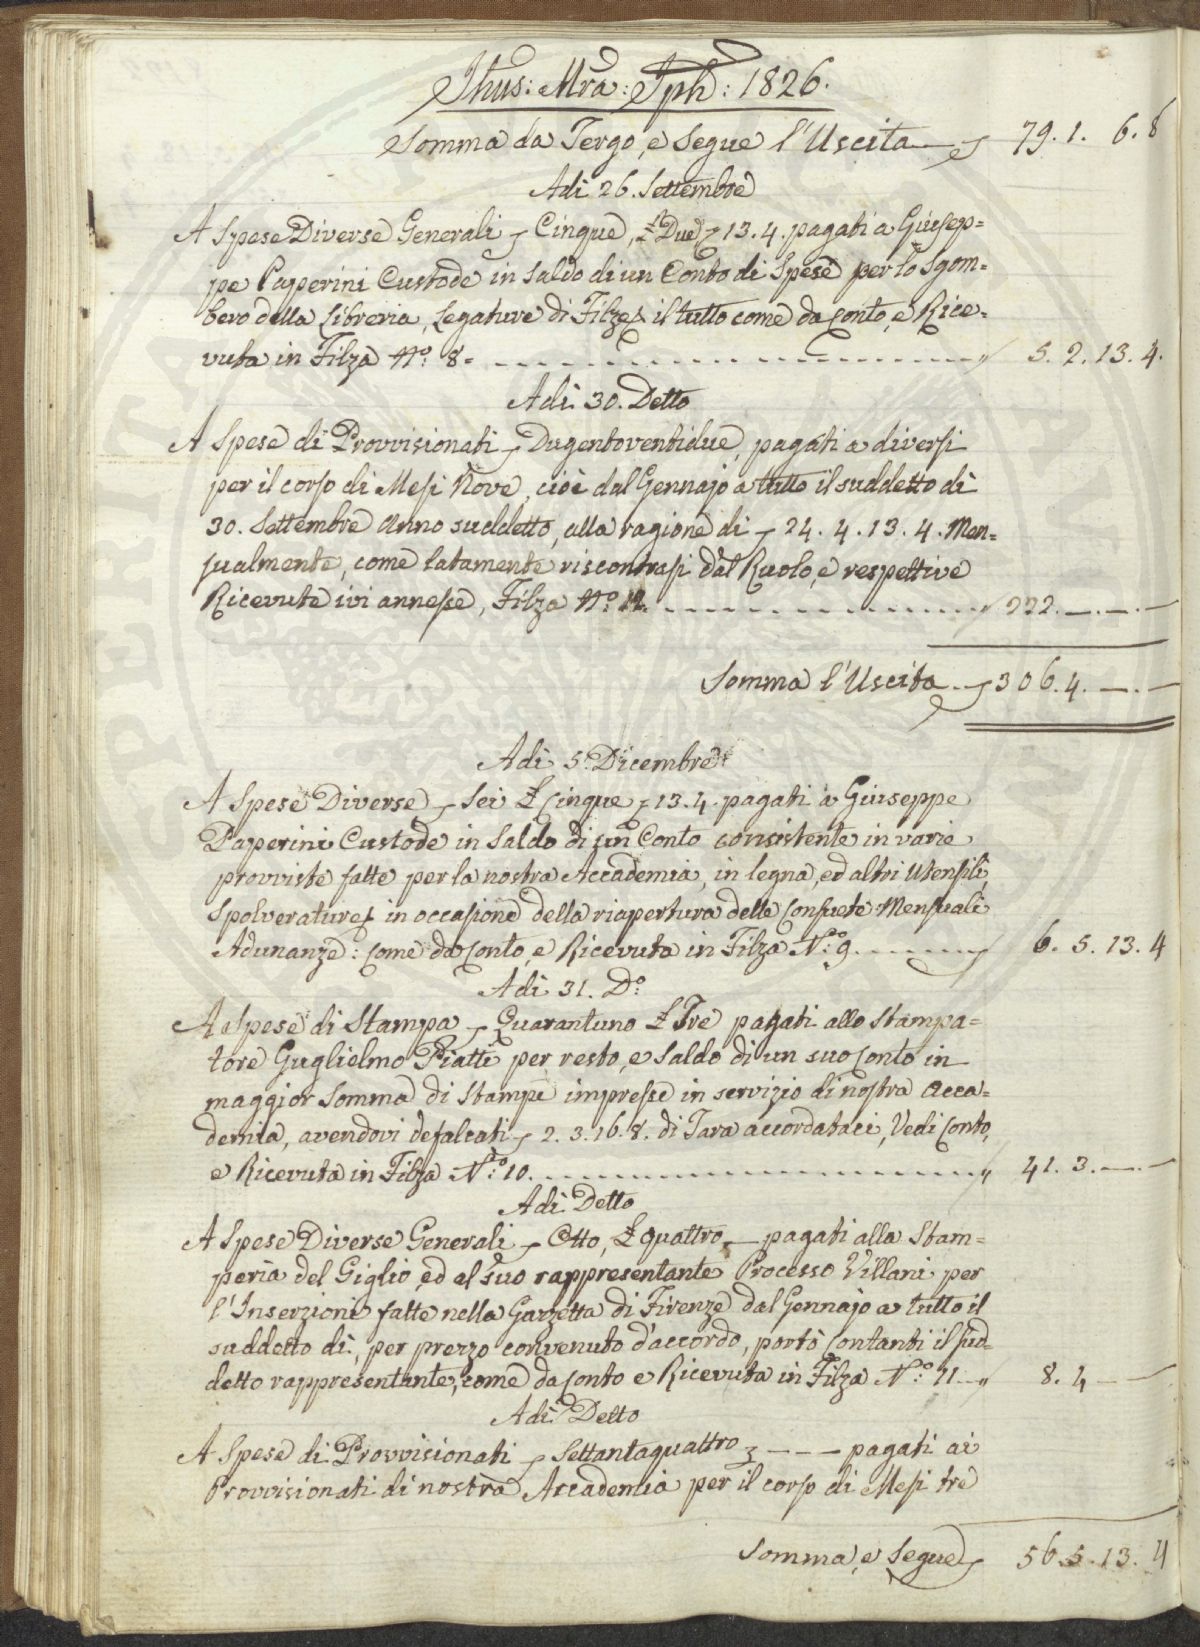 Jhus: Mra: Jph: 1826.
Somma da Tergo, e Segue l'Uscita 79. 1. 6. 8
Adi 26. Settembre
A Spese Diverse Generali Cinque, £ Due 13. 4. pagati a Giusep=
pe Paperini Custode in Saldo di un Conto di Spese per lo Sgom=
bero della Libreria, Legature di Filze il tutto come da Conto, e Rice=
vuta in Filza N.° 8. 5. 2. 13. 4.
Adi 30. Detto
A Spese di Provvisionati Dugentoventidue, pagati a diversi
per il corso di Mesi Nove, cioè dal Gennajo a tutto il suddetto dì
30. Settembre Anno suddetto, alla ragione di 24. 4. 13. 4. Men=
sualmente, come latamente riscontrasi dal Ruolo, e respettive
Ricevute ivi annesse, Filza N.° 222. —. —. —
Somma l'Uscita 306. 4. —. —
Adi 5. Dicembre
A Spese Diverse Sei £ Cinque 13. 4. pagati a Giuseppe
Paperini Custode in Saldo di un Conto consistente in varie
provviste fatte per la nostra Accademia, in legna, ed altri Utensili,
Spolverature in occasione della riapertura delle Consuete Mensuali
Adunanze: Come da Conto, e Ricevuta in Filza N.° 9. 6. 5. 13. 4
Adi 31. D.°
A Spese di Stampa Quarantuno £ Tre pagati allo Stampa=
tore Guglielmo Piatti per resto, e Saldo di un suo Conto in
maggior Somma di Stampe impresse in servizio di nostra Acca=
demia, avendovi defalcati 2. 3. 16. 8. di Tara accordataci, Vedi Conto,
e Ricevuta in Filza N.° 10. 41. 3. —. —
Adi Detto
A Spese Diverse Generali Otto, £ quattro — pagati alla Stam=
peria del Giglio, ed al suo rappresentante Processo Villani per
l'Inserzioni fatte nella Gazzetta di Firenze dal Gennajo a tutto il
suddetto dì, per prezzo convenuto d'accordo, portò Contanti il sud=
detto rappresentante, come da Conto e Ricevuta in Filza N.° 11 8. 4 — —
Adi Detto
A Spese di Provvisionati Settantaquattro — — — pagati ai
Provvisionati di nostra Accademia per il corso di Mesi tre
Somma, e Segue 56. 5. 13. 4